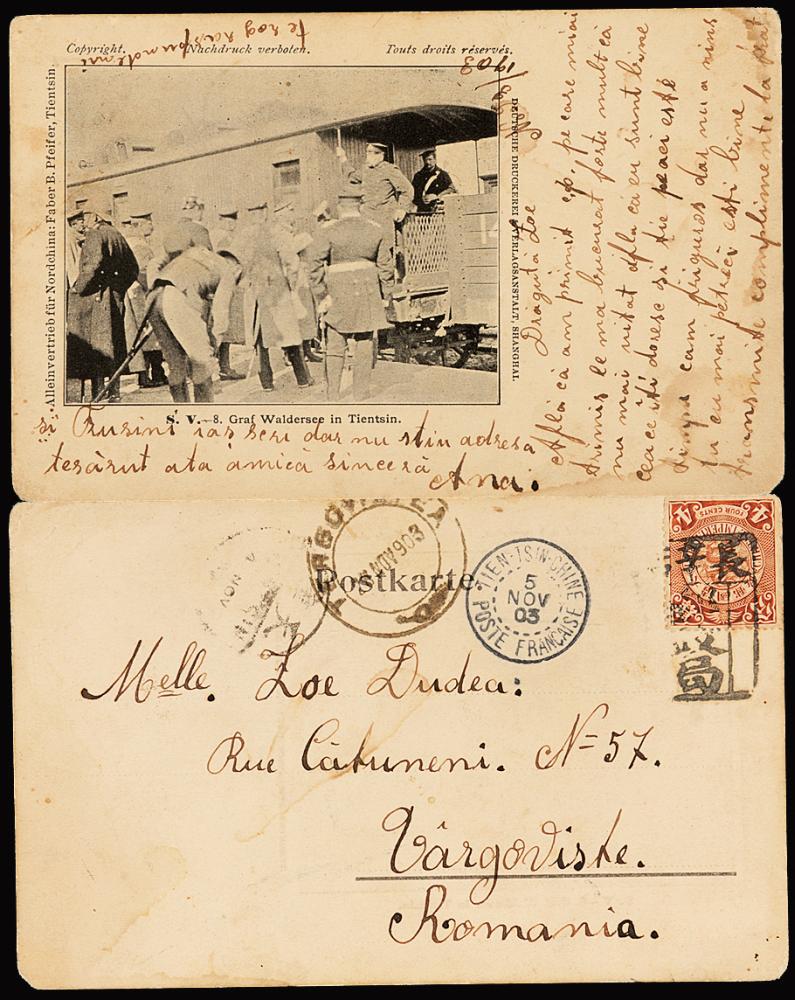 te rog raspunde mi
Copyright. Nachdruck verboten. Touts droits réservés.
Alleinvertrieb für Nordchina: Faber B. Pfeifer, Tientsin
DEUTSCHE DRUCKEREI VERLAGSANSTALT, SHANGHAI.
S. V.—8. Graf Waldersee in Tientsin.
1903
Draguță Zoe
Află că am primit c.p. pe care miai
trimis le ma bucurat forte mult că
nu mai uitat află că eu sunt bine
ceace iti doresc si tie peaci este
timpu cam friguros dar nu a nins
tu cu mai petreci esti bine
transmite complimente la
si Ruzini ias scri dar nu stiu adresa
te sărut ata amică sinceră
Ana.
Postkarte
NOV 903
TIEN-TSIN-CHINE
5
NOV
03
POSTE FRANÇAISE
FOUR CENTS
4
局
Melle. Zoe Dudea:
Rue Cătuneni. No 57.
Târgoviste.
Romania.